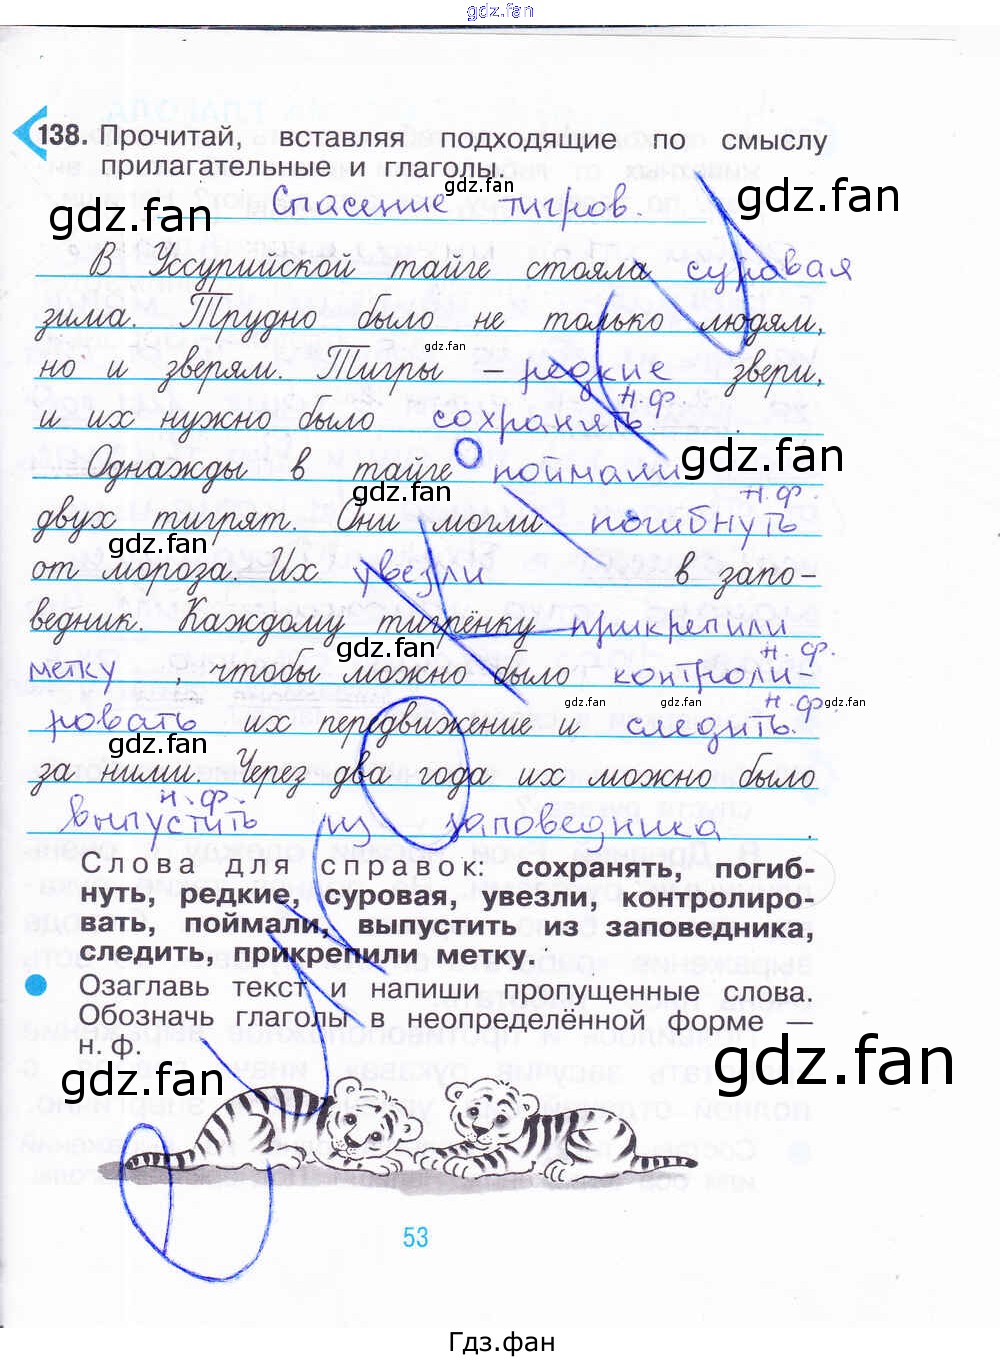 gdz.fan
138. Прочитай, вставляя подходящие по смыслу
прилагательные и глаголы.
gdz.fan
gdz.fan
gdz.fan
Спасение тигров.
В Уссурийской тайге стояла суровая
зима. Трудно было не только людям,
gdz.fan
но и зверям. Тигры – редкие звери,
н. ф.
и их нужно было сохранять.
gdz.fan
Однажды в тайге поймали
gdz.fan
н. ф.
двух тигрят. Они могли погибнуть
gdz.fan
от мороза. Их увезли в запо-
ведник. Каждому тигрёнку прикрепили
gdz.fan
н. ф.
метку, чтобы можно было контроли-
н. ф.
gdz.fan
gdz.fan
ровать их передвижение и следить
gdz.fan
за ними. Через два года их можно было
н. ф.
выпустить из заповедника.
Слова для справок: сохранять, погиб-
нуть, редкие, суровая, увезли, контролиро-
вать, поймали, выпустить из заповедника,
следить, прикрепили метку.
Озаглавь текст и напиши пропущенные слова.
Обозначь глаголы в неопределённой форме —
н. ф.
gdz.fan
gdz.fan
53
Гдз.фан